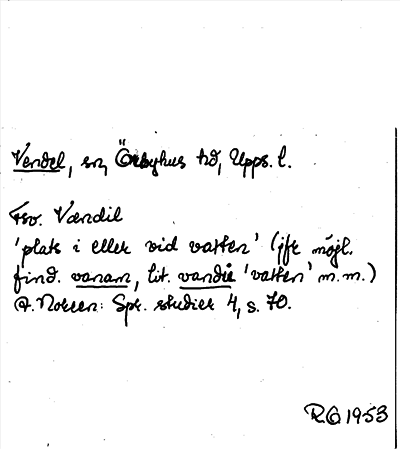 Vendel, sn, Örbyhus hd, Upps. l.
Fsv. Vændil
'plats i eller vid vatten' (jfr möjl.
find. vanam, lit. vandů 'vatten' m.m.)
A. Noreen: Spr. studier 4, s. 70.
RO 1953